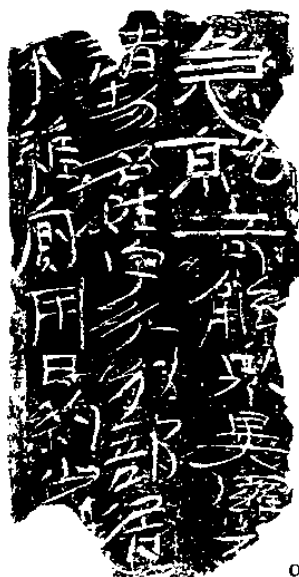 急就奇觚與異羅列
諸物名姓字分別部居
不雜廁用日約少